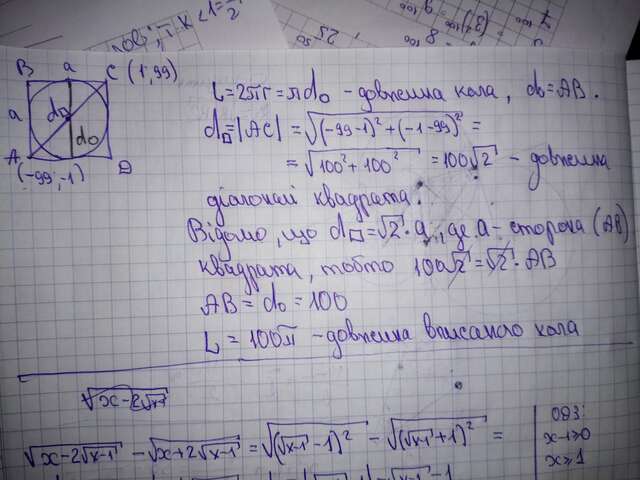 B a C (1; 99)
a d□
d₀
A D
(-99; -1)
L = 2πr = πd₀ - довжина кола, d₀ = AB.
d□ = |AC| = √((-99-1)² + (-1-99)²) =
= √(100² + 100²) = 100√2 - довжина
діагоналі квадрата.
Відомо, що d□ = √2 · a, де a - сторона (AB)
квадрата, тобто 100√2 = √2 · AB
AB = d₀ = 100
L = 100π - довжина вписаного кола
√(x-2√(x-1))
√(x-2√(x-1)) - √(x+2√(x-1)) = √((√(x-1) -1)²) - √((√(x-1) +1)²) =
ОДЗ:
x-1≥0
x≥1